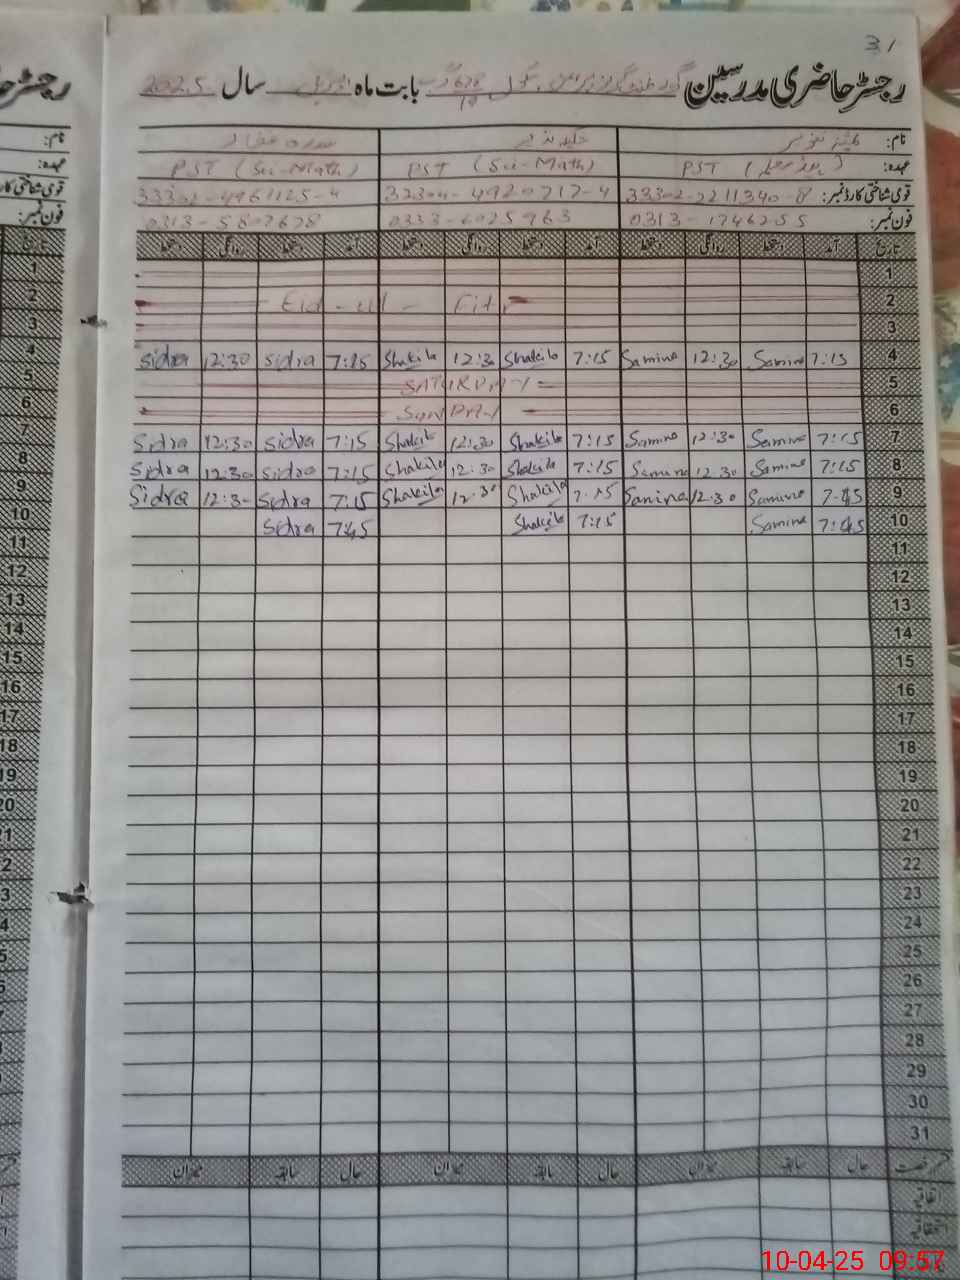 31
رجسٹر حاضری مدرسین گورنمنٹ گرلز پرائمری سکول 678/19 گ ب بابت ماہ اپریل سال 2025
نام:
عہدہ: PST (ہیڈ معلمہ) PST (Sci-Math) PST (Sci-Math)
قومی شناختی کارڈ نمبر: 33302-2211340-8 32304-4920717-4 33302-4961125-4
فون نمبر: 0313-1746255 0333-6025963 0313-5807678
تاریخ آمد دستخط روانگی دستخط آمد دستخط روانگی دستخط آمد دستخط روانگی دستخط
1
2 Eid-ul-Fitr
3
4 7:15 Samina 12:30 Samina 7:15 Shakila 12:30 Shakila 7:15 sidra 12:30 sidra
5 SATURDAY
6 SUNDAY
7 7:15 Samina 12:30 Samina 7:15 Shakila 12:30 Shakila 7:15 sidra 12:30 Sidra
8 7:15 Samina 12:30 Samina 7:15 Shakila 12:30 Shakila 7:15 sidra 12:30 Sidra
9 7:45 Samina 12:30 Samina 7:15 Shakila 12:30 Shakila 7:15 sidra 12:30 Sidra
10 7:45 Samina 7:15 Shakila 7:45 sidra
11
12
13
14
15
16
17
18
19
20
21
22
23
24
25
26
27
28
29
30
31
حال سابقہ میزان حال سابقہ میزان حال سابقہ میزان
اتفاقیہ
استحقاقیہ
10-04-25 09:57